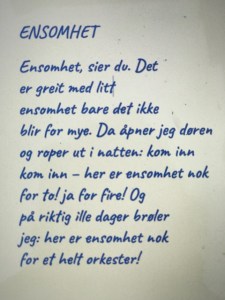 ENSOMHET
Ensomhet, sier du. Det
er greit med litt
ensomhet bare det ikke
blir for mye. Da åpner jeg døren
og roper ut i natten: kom inn
kom inn – her er ensomhet nok
for to! ja for fire! Og
på riktig ille dager brøler
jeg: her er ensomhet nok
for et helt orkester!